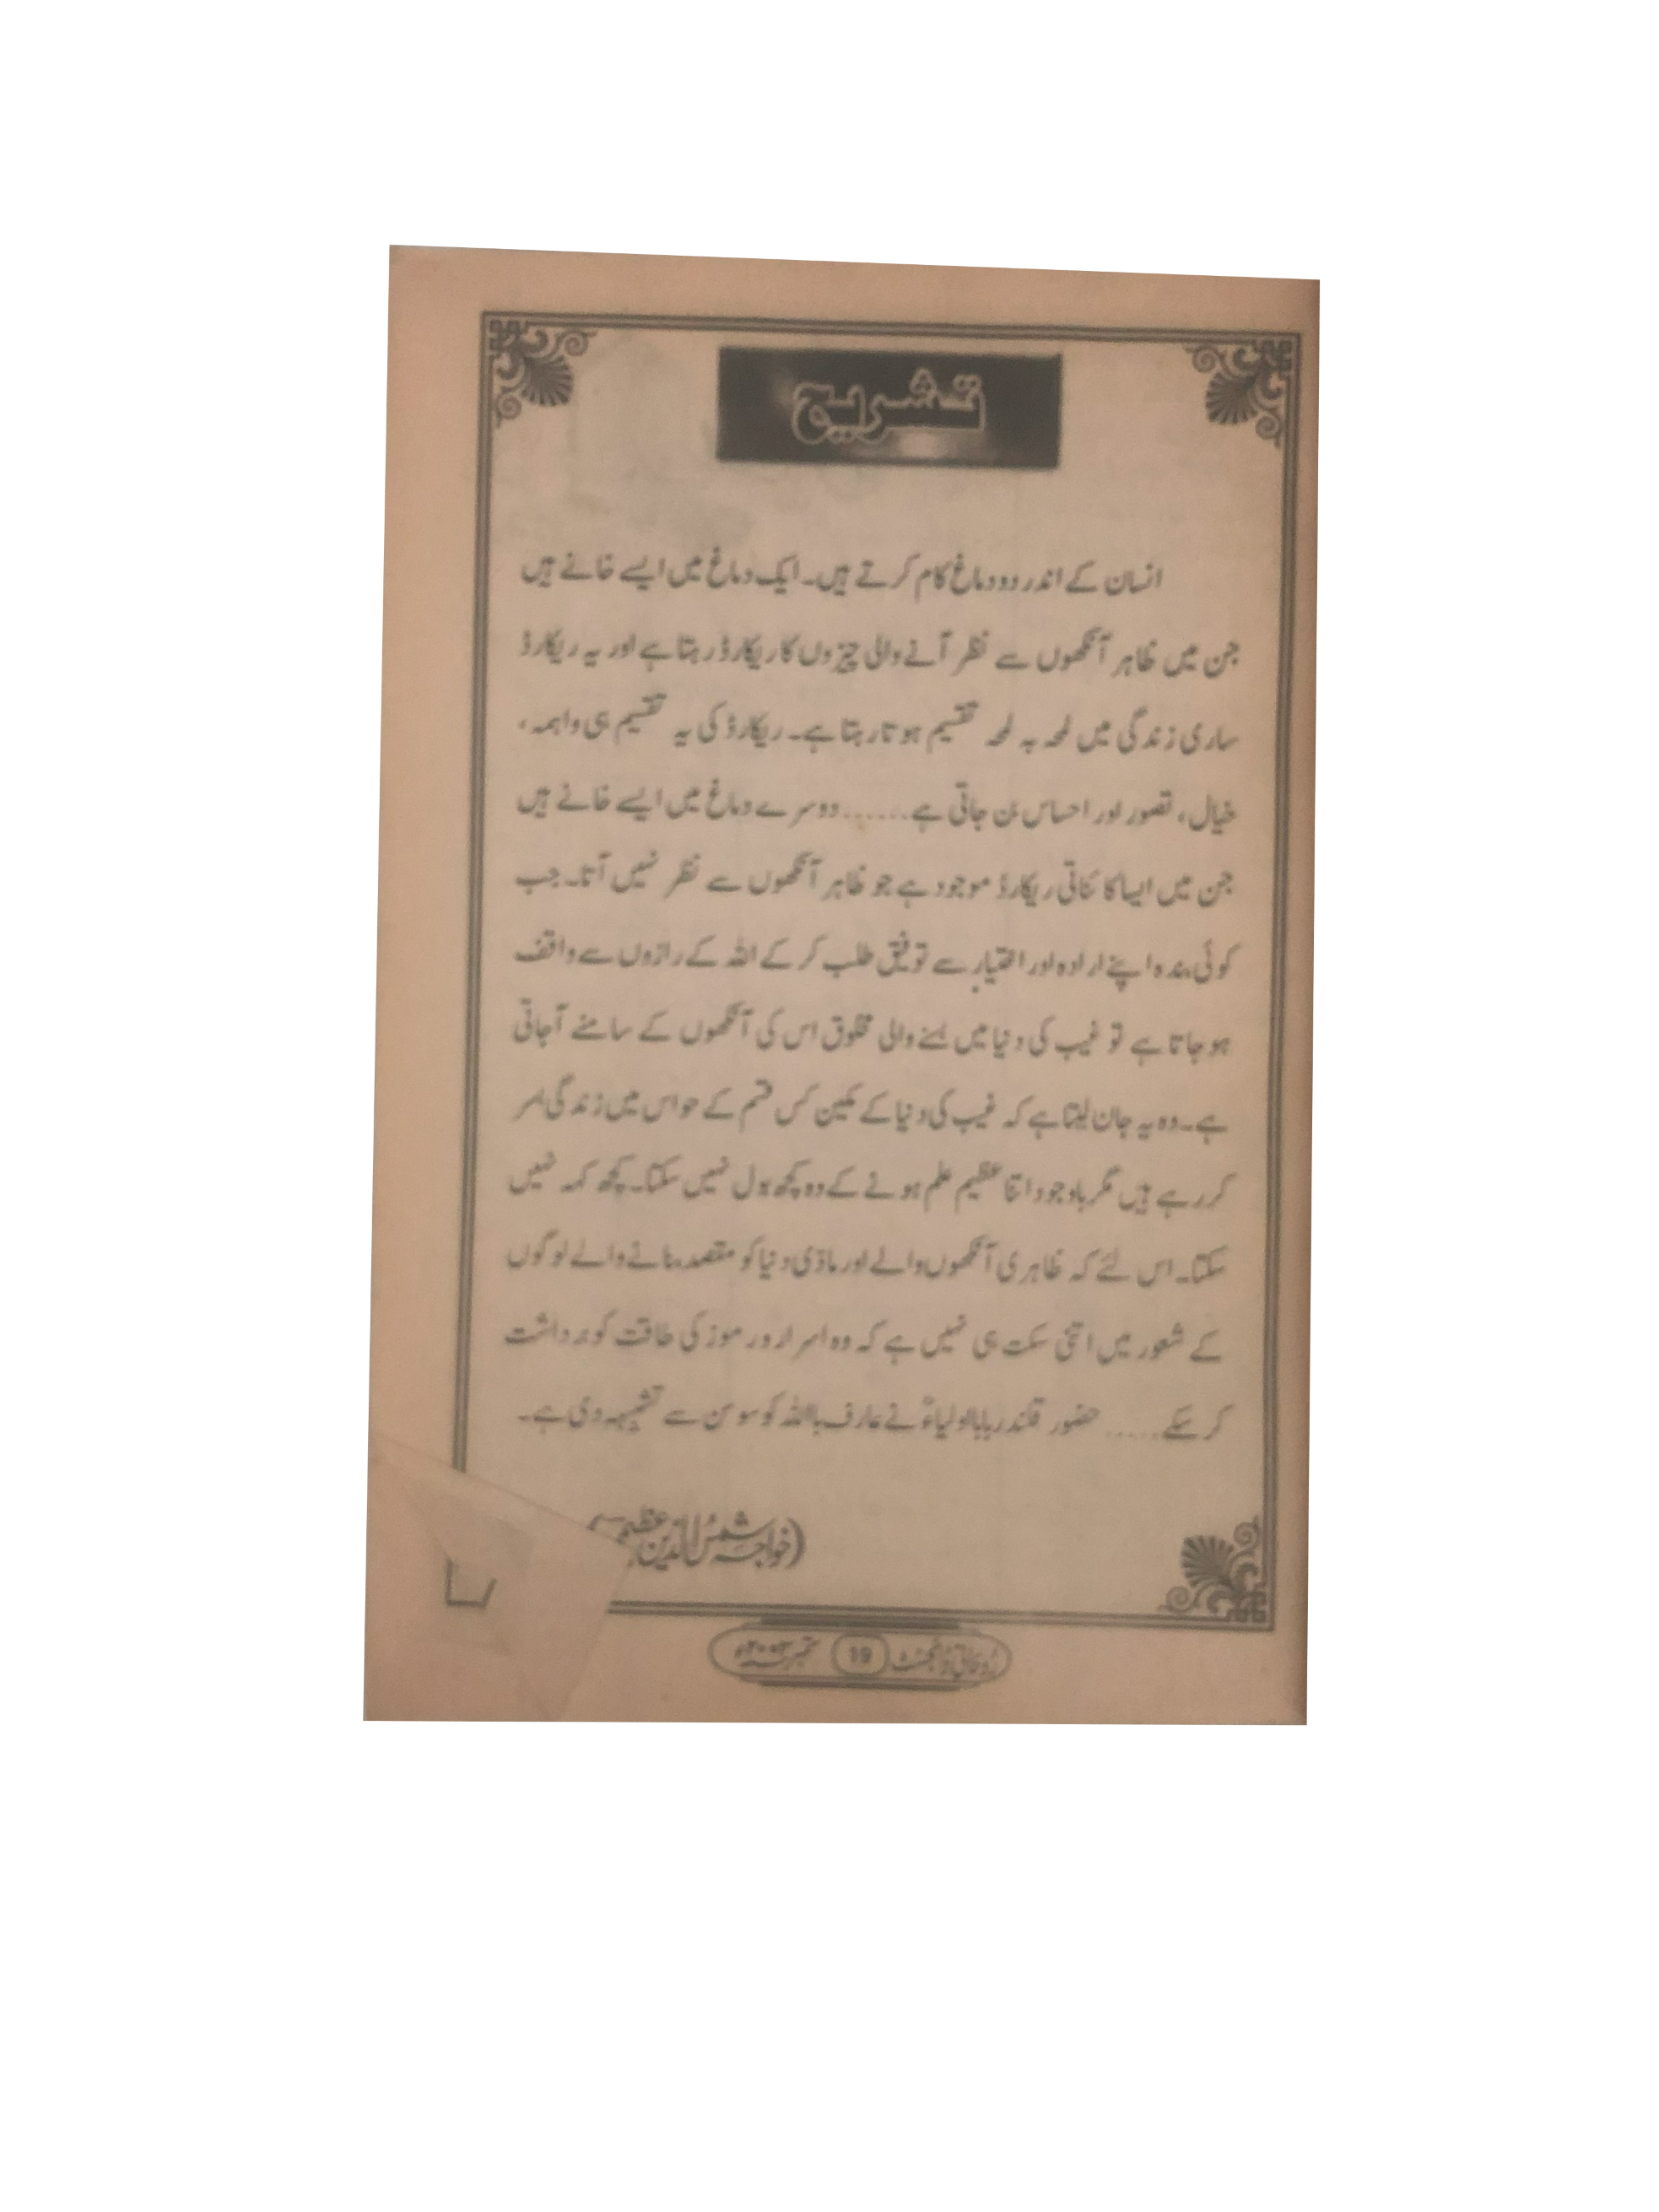 تشریح
انسان کے اندر دو دماغ کام کرتے ہیں۔ ایک دماغ میں ایسے خانے ہیں
جن میں ظاہر آنکھوں سے نظر آنے والی چیزوں کا ریکارڈ رہتا ہے اور یہ ریکارڈ
ساری زندگی میں لمحہ بہ لمحہ تقسیم ہوتا رہتا ہے۔ ریکارڈ کی یہ تقسیم ہی واہمہ،
خیال، تصور اور احساس بن جاتی ہے...... دوسرے دماغ میں ایسے خانے ہیں
جن میں ایسا کائناتی ریکارڈ موجود ہے جو ظاہر آنکھوں سے نظر نہیں آتا۔ جب
کوئی بندہ اپنے ارادہ اور اختیار سے توفیق طلب کر کے اللہ کے رازوں سے واقف
ہو جاتا ہے تو غیب کی دنیا میں بسنے والی مخلوق اس کی آنکھوں کے سامنے آجاتی
ہے۔ وہ یہ جان لیتا ہے کہ غیب کی دنیا کے مکین کس قسم کے حواس میں زندگی بسر
کر رہے ہیں مگر باوجود اتنا عظیم علم ہونے کے وہ کچھ بول نہیں سکتا۔ کچھ کہہ نہیں
سکتا۔ اس لئے کہ ظاہری آنکھوں والے اور مادّی دنیا کو مقصد بنانے والے لوگوں
کے شعور میں اتنی سکت ہی نہیں ہے کہ وہ اسرار و رموز کی طاقت کو برداشت
کر سکے..... حضور قلندر بابا اولیاءؒ نے عارف باللہ کو سوسن سے تشبیہہ دی ہے۔
(خواجہ شمسُ الدّین عظیمی
رُوحانی ڈائجسٹ 19 ستمبر ۲۰۰۳ء